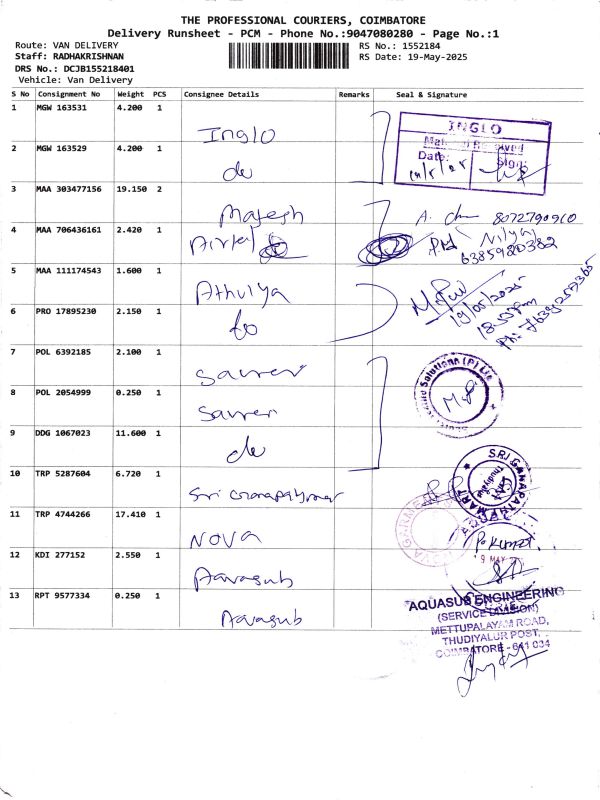 THE PROFESSIONAL COURIERS, COIMBATORE
Delivery Runsheet - PCM - Phone No.:9047080280 - Page No.:1
Route: VAN DELIVERY
RS No.: 1552184
Staff: RADHAKRISHNAN
RS Date: 19-May-2025
DRS No.: DCJB155218401
Vehicle: Van Delivery
S No Consignment No Weight PCS Consignee Details Remarks Seal & Signature
1 MGW 163531 4.200 1 Inglo
INGLO
Material Received
Date: Sign:
2 MGW 163529 4.200 1 do
3 MAA 303477156 19.150 2 Mahesh
8072790910
4 MAA 706436161 2.420 1 Airtel
Nilya
6385980382
5 MAA 111174543 1.600 1 Athulya
19/05/2025
6 PRO 17895230 2.150 1 do
7 POL 6392185 2.100 1 Saurer
Solutions (P) Ltd
8 POL 2054999 0.250 1 Saurer
9 DDG 1067023 11.600 1 do
10 TRP 5287604 6.720 1 Sri Ganapathy mar
SRI GANAPATHY MART
11 TRP 4744266 17.410 1 NOVA
P. Kumar
9 MAY
12 KDI 277152 2.550 1 Aavasub
13 RPT 9577334 0.250 1 Aavasub
AQUASUB ENGINEERING
(SERVICE DIVISION)
METTUPALAYAM ROAD,
THUDIYALUR POST,
COIMBATORE - 641 034